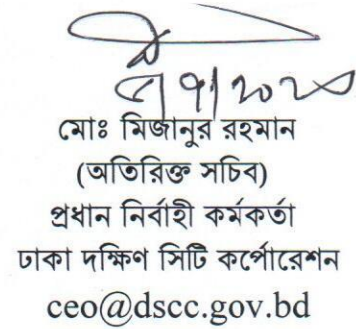 মোঃ মিজানুর রহমান
(অতিরিক্ত সচিব)
প্রধান নির্বাহী কর্মকর্তা
ঢাকা দক্ষিণ সিটি কর্পোরেশন
ceo@dscc.gov.bd